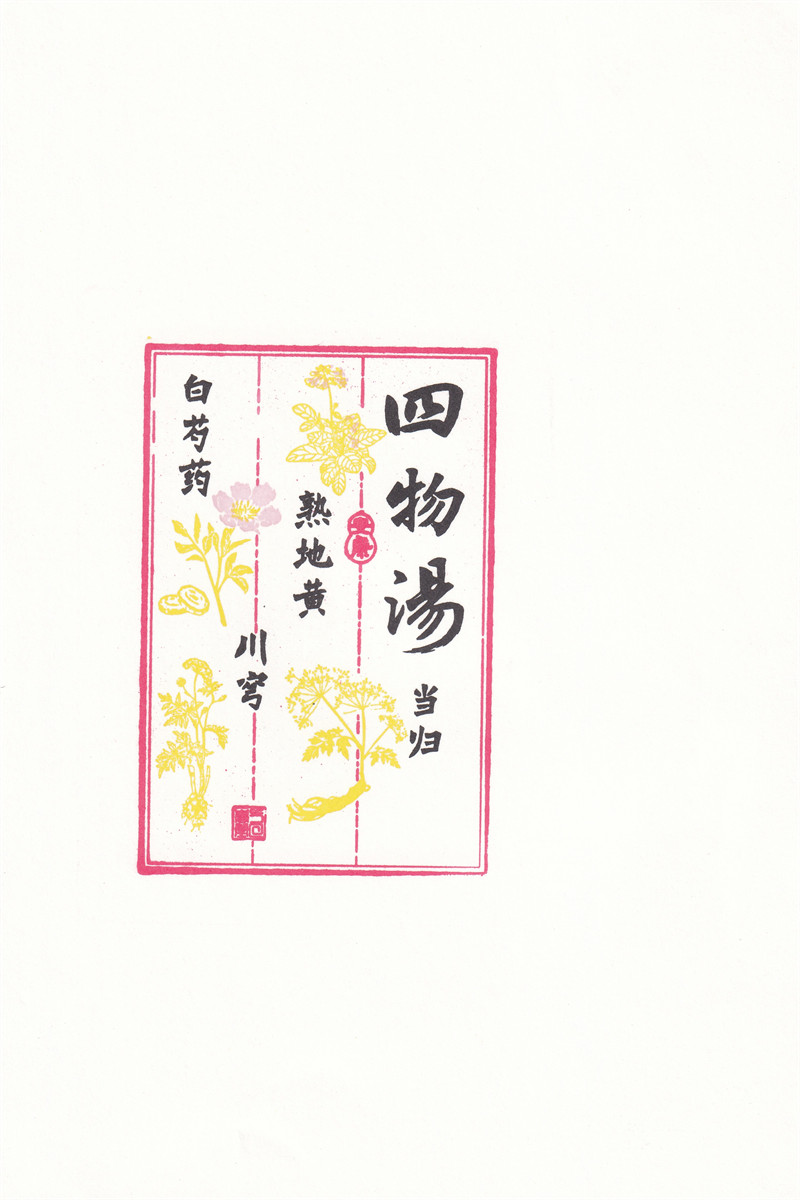 四物湯
当归
熟地黄
川穹
白芍药
安康